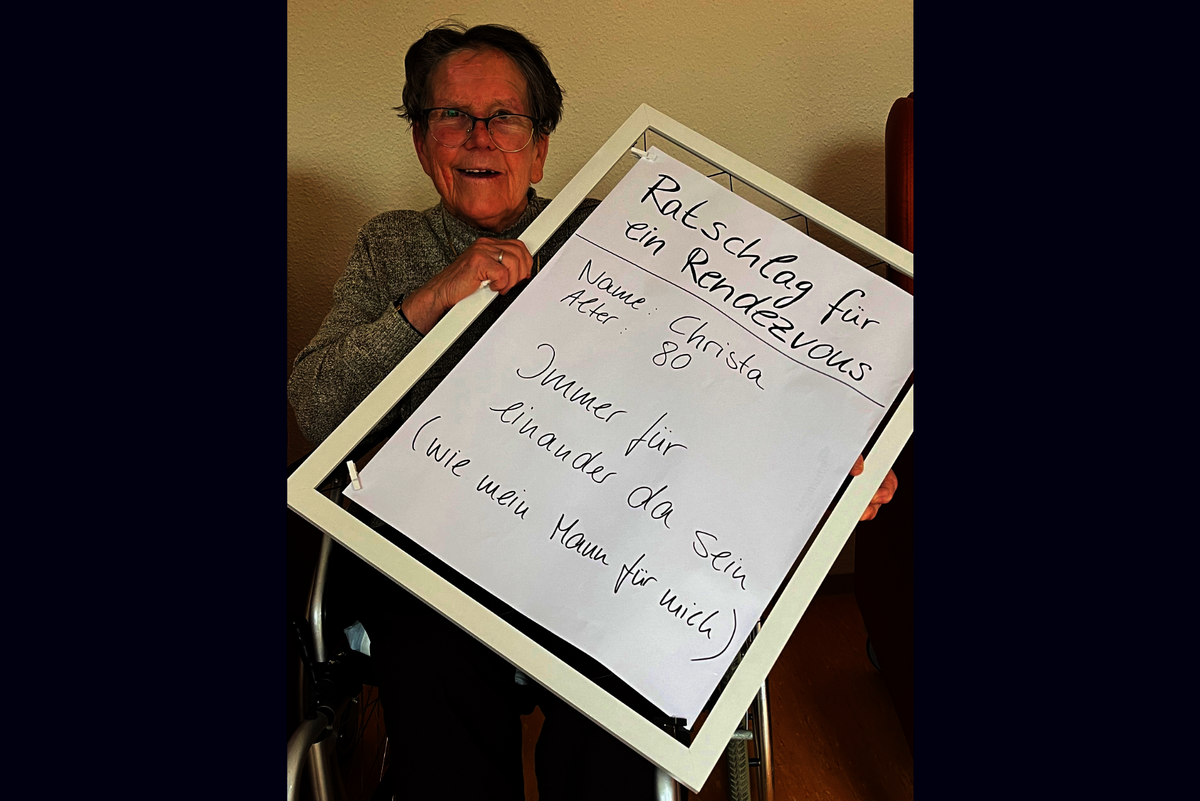 Ratschlag für
ein Rendezvous
Name: Christa
Alter: 80
Immer für
einander da sein
(wie mein Mann für mich)